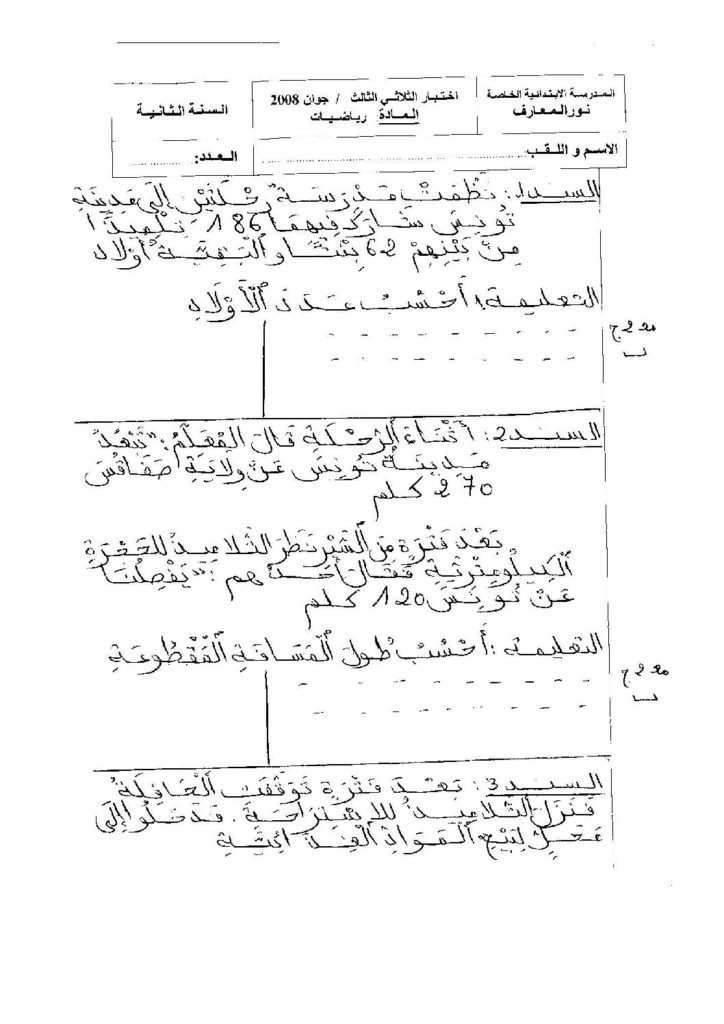 المدرسة الابتدائية الخاصة
نور المعارف
اختبار الثلاثي الثالث / جوان 2008
المادة رياضيات
السنة الثانية
الاسم و اللقب:
العدد:
السند1: نَظَّمَتْ مَدْرَسَةٌ رِحْلَتَيْنِ إِلَى مَدِينَةِ
تُونِسَ شَارَكَ فِيهِمَا 186 تِلْمِيذًا
مِنْ بَيْنِهِمْ 62 بِنْتًا وَالْبَقِيَّةُ أَوْلَاد
التعليمة: أَحْسُبُ عَدَدَ الْأَوْلَادِ
السند2: أَثْنَاءَ الرِّحْلَةِ قَالَ الْمُعَلِّمُ: "تَبْعُدُ
مَدِينَةُ تُونِسَ عَنْ وِلَايَةِ صَفَاقُسَ
270 كلم
بَعْدَ فَتْرَةٍ مِنَ السَّيْرِ نَظَرَ التَّلَامِيذُ لِلْحَجَرَةِ
الْكِيلُومِتْرِيَّةِ فَقَالَ أَحَدُهم: "يَفْصِلُنَا
عَنْ تُونِسَ 120 كلم
التعليمة: أَحْسُبُ طُولَ الْمَسَافَةِ الْمَقْطُوعَةِ
السند3: بَعْدَ فَتْرَةٍ تَوَقَّفَتِ الْحَافِلَةُ
فَنَزَلَ التَّلَامِيذُ لِلاِسْتِرَاحَةِ. فَدَخَلُوا إِلَى
مَحَلٍّ لِبَيْعِ الْمَوَادِّ الْغِذَائِيَّةِ